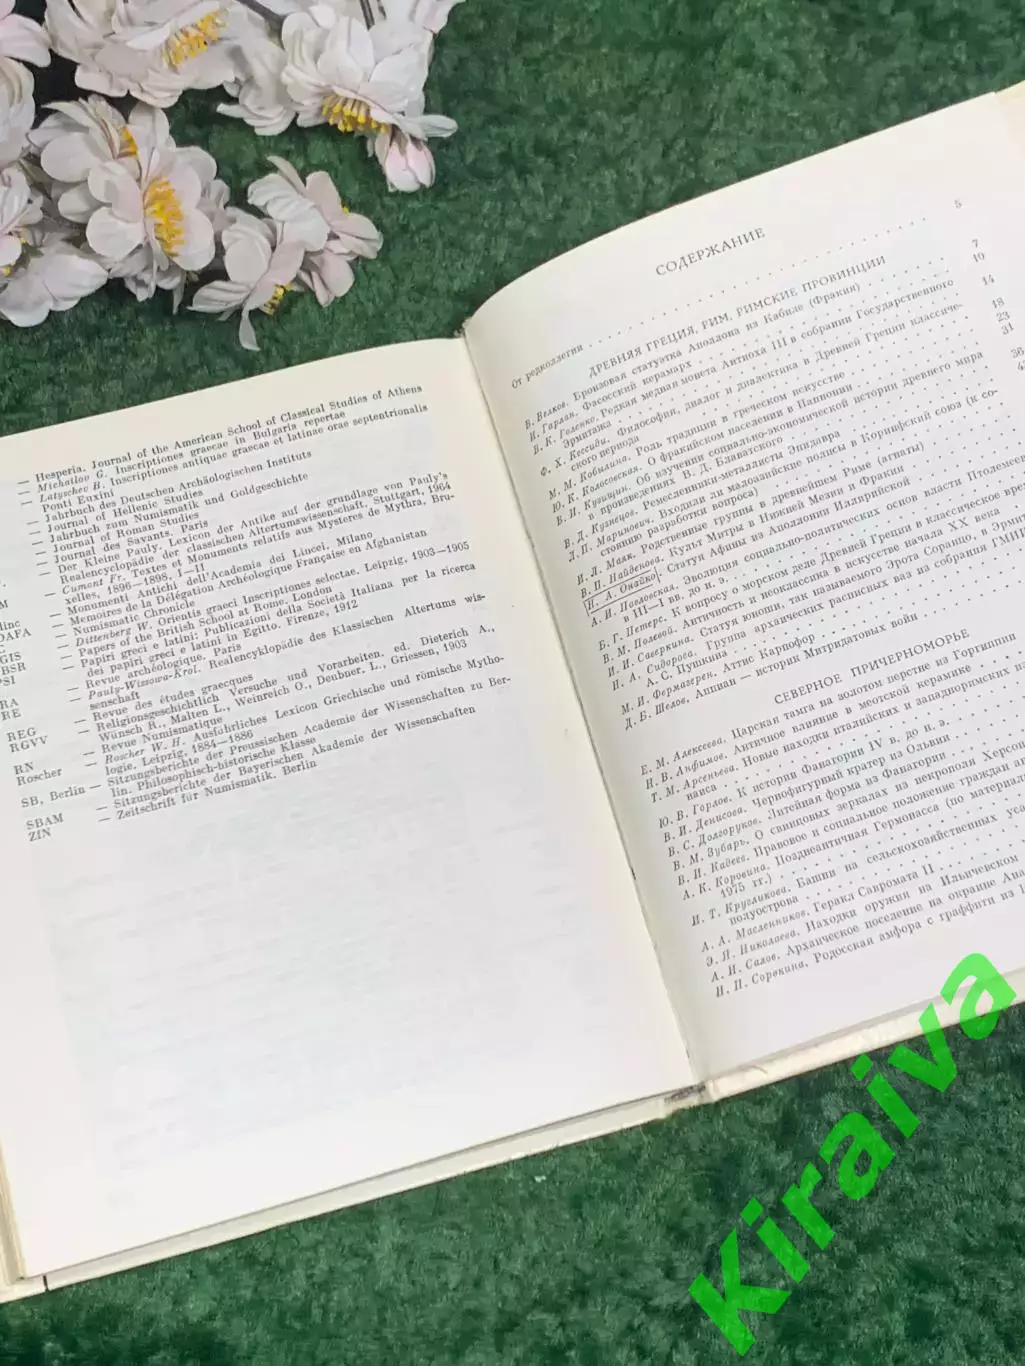 — Hesperia. Journal of the American School of Classical Studies of Athens
— Michailov G. Inscriptiones graecae in Bulgaria repertae
— Latyschev B. Inscriptiones antiquae graecae et latinae orae septentrionalis
Ponti Euxini
— Jahrbuch des Deutschen Archäologischen Instituts
— Journal of Hellenic Studies
— Jahrbuch zum Numismatik und Goldgeschichte
— Journal of Roman Studies
— Journal des Savants. Paris
— Der Kleine Pauly. Lexicon der Antike auf der grundlage von Pauly's
Realencyclopädie der classischen Altertumswissenschaft, Stuttgart, 1964
— Cumont Fr. Textes et Monuments relatifs aux Mysteres de Mythra, Bru-
xelles, 1896—1898, 1—11
— Monumenti Antichi dell'Academia dei Lincei. Milano
— Memoires de la Délégation Archéologique Française en Afghanistan
— Numismatic Chronicle
— Dittenberg W. Orientis graeci Inscriptiones selectae. Leipzig, 1903—1905
— Papers of the British School at Rome. London
— Papiri greci e latini: Publicazioni della Società Italiana per la ricerca
dei papiri greci e latini in Egitto. Firenze, 1912
— Revue archéologique. Paris
— Pauly-Wissowa-Krol. Realencyklopädie des Klassischen Altertums wis-
senschaft
REG — Revue des études graecques
RGVV — Religionsgeschichtlich Versuche und Vorarbeiten. ed. Dieterich A.,
Wünsch R., Malten L., Weinreich O., Deubner, L., Griessen, 1903
RN — Revue Numismatique
Roscher — Roscher W. H. Ausführliches Lexicon Griechische und römische Mytho-
logie. Leipzig, 1884—1886
SB, Berlin — Sitzungsberichte der Preussischen Academie der Wissenschaften zu Ber-
lin. Philosophisch-historische Klasse
SBAM — Sitzungsberichte der Bayerischen Akademie der Wissenschaften
ZfN — Zeitschrift für Numismatik. Berlin
СОДЕРЖАНИЕ
От редколлегии 5
ДРЕВНЯЯ ГРЕЦИЯ, РИМ, РИМСКИЕ ПРОВИНЦИИ
В. Велков. Бронзовая статуэтка Аполлона из Кабиле (Фракия) 7
И. Гарлан. Фасосский керамарх 10
В. К. Голенко. Редкая медная монета Антиоха III в собрании Государственного
Эрмитажа 14
Ф. Х. Кессиди. Философия, диалог и диалектика в Древней Греции классиче-
ского периода 18
М. М. Кобылина. Роль традиции в греческом искусстве 23
Ю. К. Колосовская. О фракийском населении в Паннонии 31
В. И. Кузищин. Об изучении социально-экономической истории древнего мира
в произведениях В. Д. Блаватского
В. Д. Кузнецов. Ремесленники-металлисты Эпидавра
Л. П. Маринович. Входили ли малоазийские полисы в Коринфский союз (к со-
стоянию разработки вопроса)
И. Л. Маяк. Родственные группы в древнейшем Риме (агнаты)
В. П. Найденова. Культ Митры в Нижней Мезии и Фракии
Н. А. Онайко. Статуя Афины из Аполлонии Иллирийской
А. И. Павловская. Эволюция социально-политических основ власти Птолемеев
в III—I вв. до н. э.
Б. Г. Петерс. К вопросу о морском деле Древней Греции в классическое вре
В. М. Полевой. Античность и неоклассика в искусстве начала XX века
И. И. Саверкина. Статуя юноши, так называемого Эрота Соранцо, в Эрмит
Н. А. Сидорова. Группа архаических расписных ваз из собрания ГМИ
А. С. Пушкина
М. И. Фермазерен. Аттис Карпофор
Д. Б. Шелов. Аппиан — историк Митридатовых войн
СЕВЕРНОЕ ПРИЧЕРНОМОРЬЕ
Е. М. Алексеева. Царская тамга на золотом перстне из Горгиппии
Н. В. Анфимов. Античное влияние в меотской керамике
Т. М. Арсеньева. Новые находки италийских и западнопонтийских
наиса
Ю. В. Горлов. К истории Фанагории IV в. до н. э.
В. И. Денисова. Чернофигурный кратер из Ольвии
В. С. Долгоруков. Литейная форма из Фанагории
В. М. Зубарь. О свинцовых зеркалах из некрополя Херсон
В. И. Кадеев. Правовое и социальное положение граждан
А. К. Коровина. Позднеантичная Гермонасса (по материал
1975 гг.)
И. Т. Кругликова. Башни на сельскохозяйственных ус
полуострова
А. А. Масленников. Геракл Савромата II
Э. Я. Николаева. Находки оружия на Ильичевском
А. И. Салов. Архаическое поселение на окраине Ана
Н. П. Сорокина. Родосская амфора с граффити из
Kiraiva